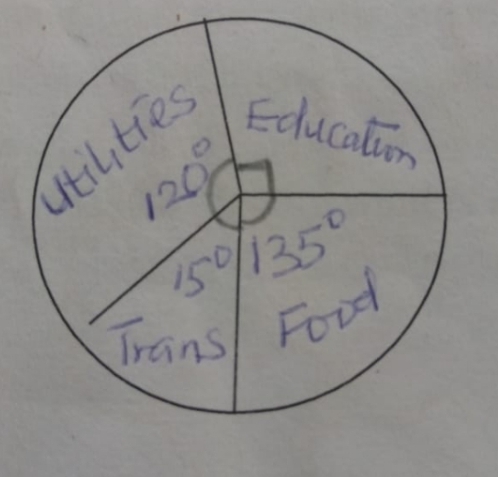 Utilities
120°
Education
15°
135°
Trans
Food